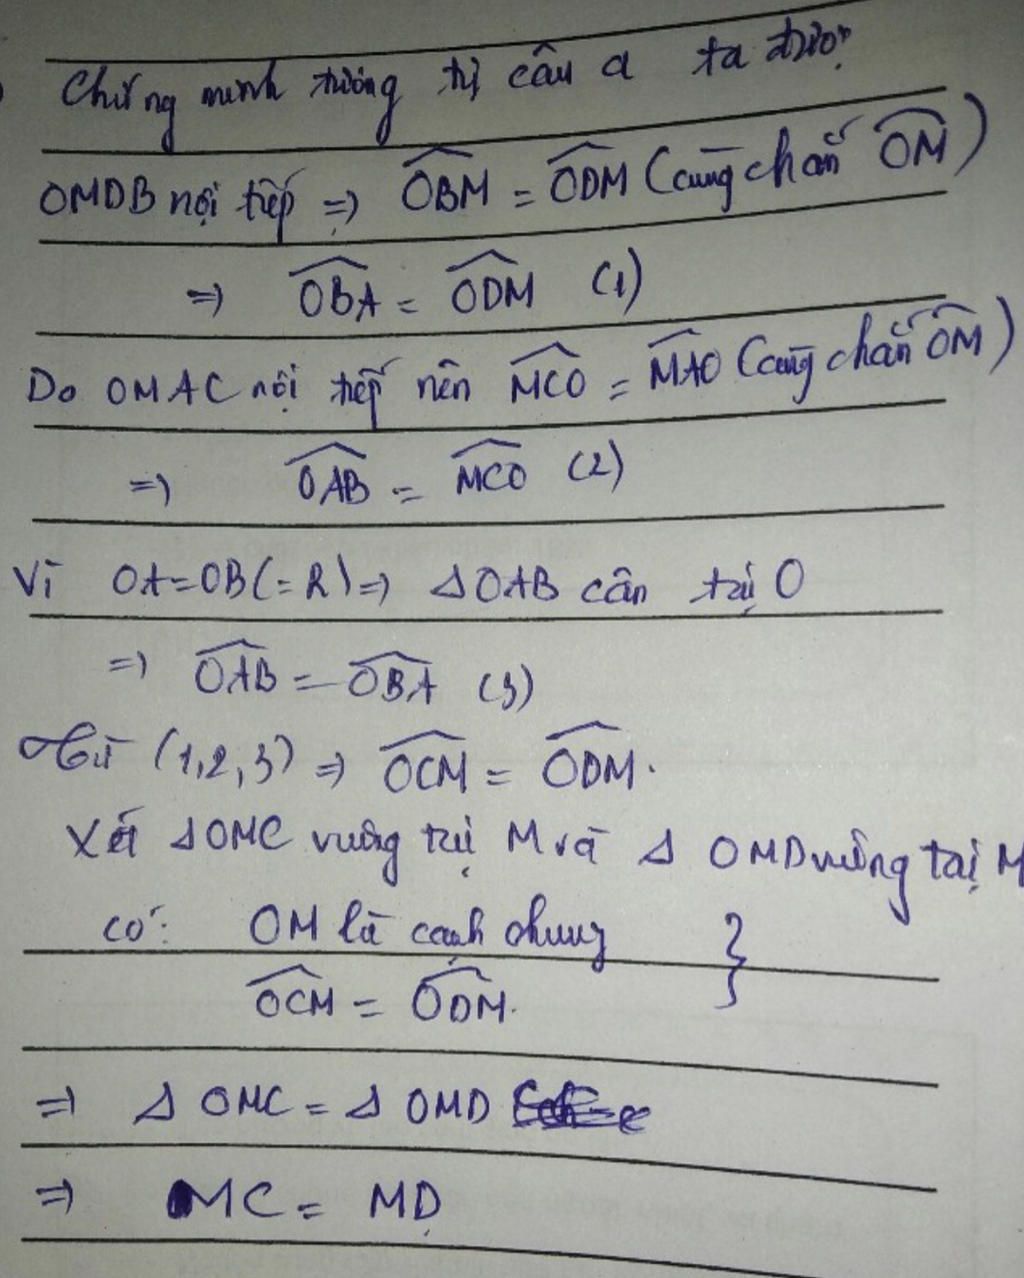 Chứng minh tương tự câu a ta được
OMDB nội tiếp => \widehat{OBM} = \widehat{ODM} (cùng chắn \overset{\frown}{OM})
=> \widehat{OBA} = \widehat{ODM} (1)
Do OMAC nội tiếp nên \widehat{MCO} = \widehat{MAO} (cùng chắn \overset{\frown}{OM})
=> \widehat{OAB} = \widehat{MCO} (2)
Vì OA=OB(=R) => ΔOAB cân tại O
=> \widehat{OAB} = \widehat{OBA} (3)
Từ (1,2,3) => \widehat{OCM} = \widehat{ODM}.
Xét ΔOMC vuông tại M và Δ OMD vuông tại M
có: OM là cạnh chung }
\widehat{OCM} = \widehat{ODM}.
=> Δ OMC = Δ OMD
=> MC = MD